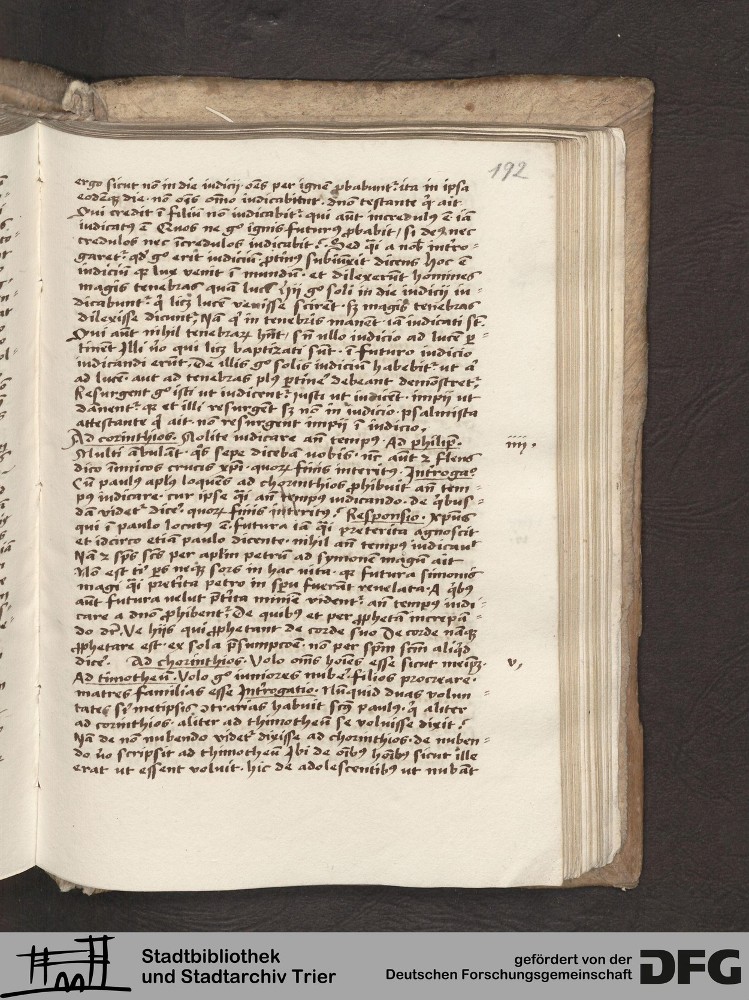 192
ergo sicut nō in die iudicij· oēs per ignē ꝓbabunt᷑· ita in ipsa
eodēqꝫ die· nō oēs oīno iudicabūtur· dnō testante q̇ ait
Qui credit ī filiū nō iudicabit᷑· qui aūt incredulꝰ ē· iā
iudicatꝰ ē Quos ne gͦ ignis futurꝰ ꝓbabit/ si deꝰ nec
credulos nec īcredulos iudicabit? Sed q̇i a nob̄ intro-
garet᷑· qd̓ gͦ erit iudiciū ꝓtinꝰ subiūxit dicens hoc ē
iudiciū qꝛ lux venit ī mundū· et dilexerūt homines
magis tenebras quā lucē hij gͦ soli in die iudicij iu-
dicabunt᷑· q̇ licꝫ lucē venisse scirēt· sꝫ magis tenebras
dilexisse dicunt᷑· Nā q̇ in tenebris manēt· iā iudicati st̄·
Qui aūt nihil tenebraꝝ hn̄t/ sn̄ ullo iudicio ad lucē ꝑ-
tinēt Illi v̊o qui licꝫ baptizati sūt· ī futuro iudicio
iudicandi erūt· De illis gͦ solis iudiciū habebit᷑· ut a̍
ad lucē· aut ad tenebras plꝰ ꝑtine᷑ debeant demōstret᷑
Resurgent gͦ isti ut iudicent᷑· iusti ut iudicēt· impij ut
dānent᷑· qꝛ et illi resurgēt sꝫ nō in iudicio· psalmista
attestante q̇ ait· nō resurgent impij ī iudicio·
Ad corinthios· Nolite iudicare an̄ tempꝰ· Ad philip̄·
iiij·
Multi ābulāt· q̇s sepe dicebā uobis· nūc aūt ⁊ flens
dico inimicos crucis xp̄i· quoꝝ finis interitꝰ· Introgaͦ
Cū paulꝰ apl̄s loquēs ad chorinthios ꝓhibuit an̄ tem-
pꝰ iudicare· cur ipse q̇i an̄ tempꝰ iudicando· de q̇bus-
dā videt᷑ dice᷑· quoꝝ finis interitꝰ? Responsio· xp̄us
qui ī paulo locutꝰ ē· futura iā q̇i preterita agnoscit
et idcirco etiā paulo dicente· nihil an̄ tempꝰ iudicauit
Nā ⁊ sp̄s sc̄s per ap̄lm petrū ad symonē magū ait
Nō est tī ꝑs neqꝫ sors in hac uita· qꝛ futura simonis
magi q̇i pret̓ita petro in sp̄u fuerāt reuelata· A q̇bꝰ
aūt futura uelut p̄t̓ita minīe vident᷑· an̄ tempꝰ iudi-
care a dnō ꝓhibent᷑· De quibꝰ et per ꝓphetā increpā-
do dr̄· Ve hijs qui ꝓphetant de corde suo De corde nāqꝫ
ꝓphetare est· ex sola p̄sumpcōē· nō per sp̄m sc̄m aliq̇d
dice᷑· Ad chorinthios· Volo om̄s hoīes esse sicut meip̄ꝫ·
v,
Ad timotheū· Volo gͦ iuniores nube᷑· filios procreare·
matres familias esse Int̓rogatio· Nūquid duas volun-
tates s̄ metipsis ↄtrarias habuit sc̄s paulꝰ· q̇ aliter
ad corinthios· aliter ad thimotheū se voluisse dixit?
Nā de nō nubendo videt᷑ dixisse ad chorinthios· de nuben-
do v̊o scripsit ad thimotheū Ibi de oībꝰ hoībꝰ sicut ille
erat ut essent voluit· hic de adolescentibꝰ ut nubāt
Stadtbibliothek
und Stadtarchiv Trier
gefördert von der
Deutschen Forschungsgemeinschaft
DFG